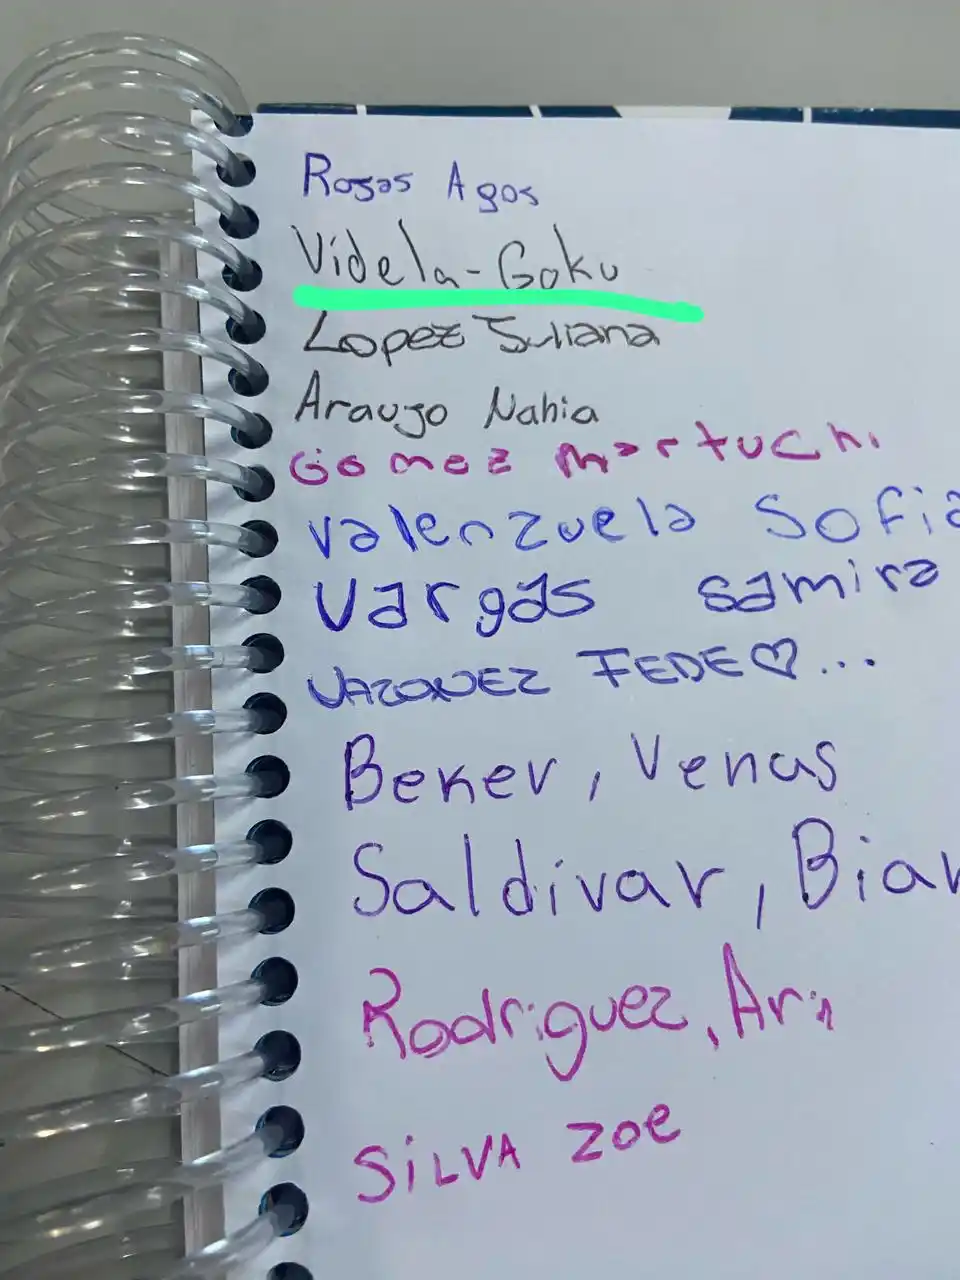 Rosas Agos
Videla-Goku
Lopez Juliana
Araujo Nahia
Gomez Martuchi
Valenzuela Sofia
Vargas Samira
VAZQUEZ FEDE♡...
Beker, Venus
Saldivar, Bian
Rodriguez, Ari
SiLVA Zoe